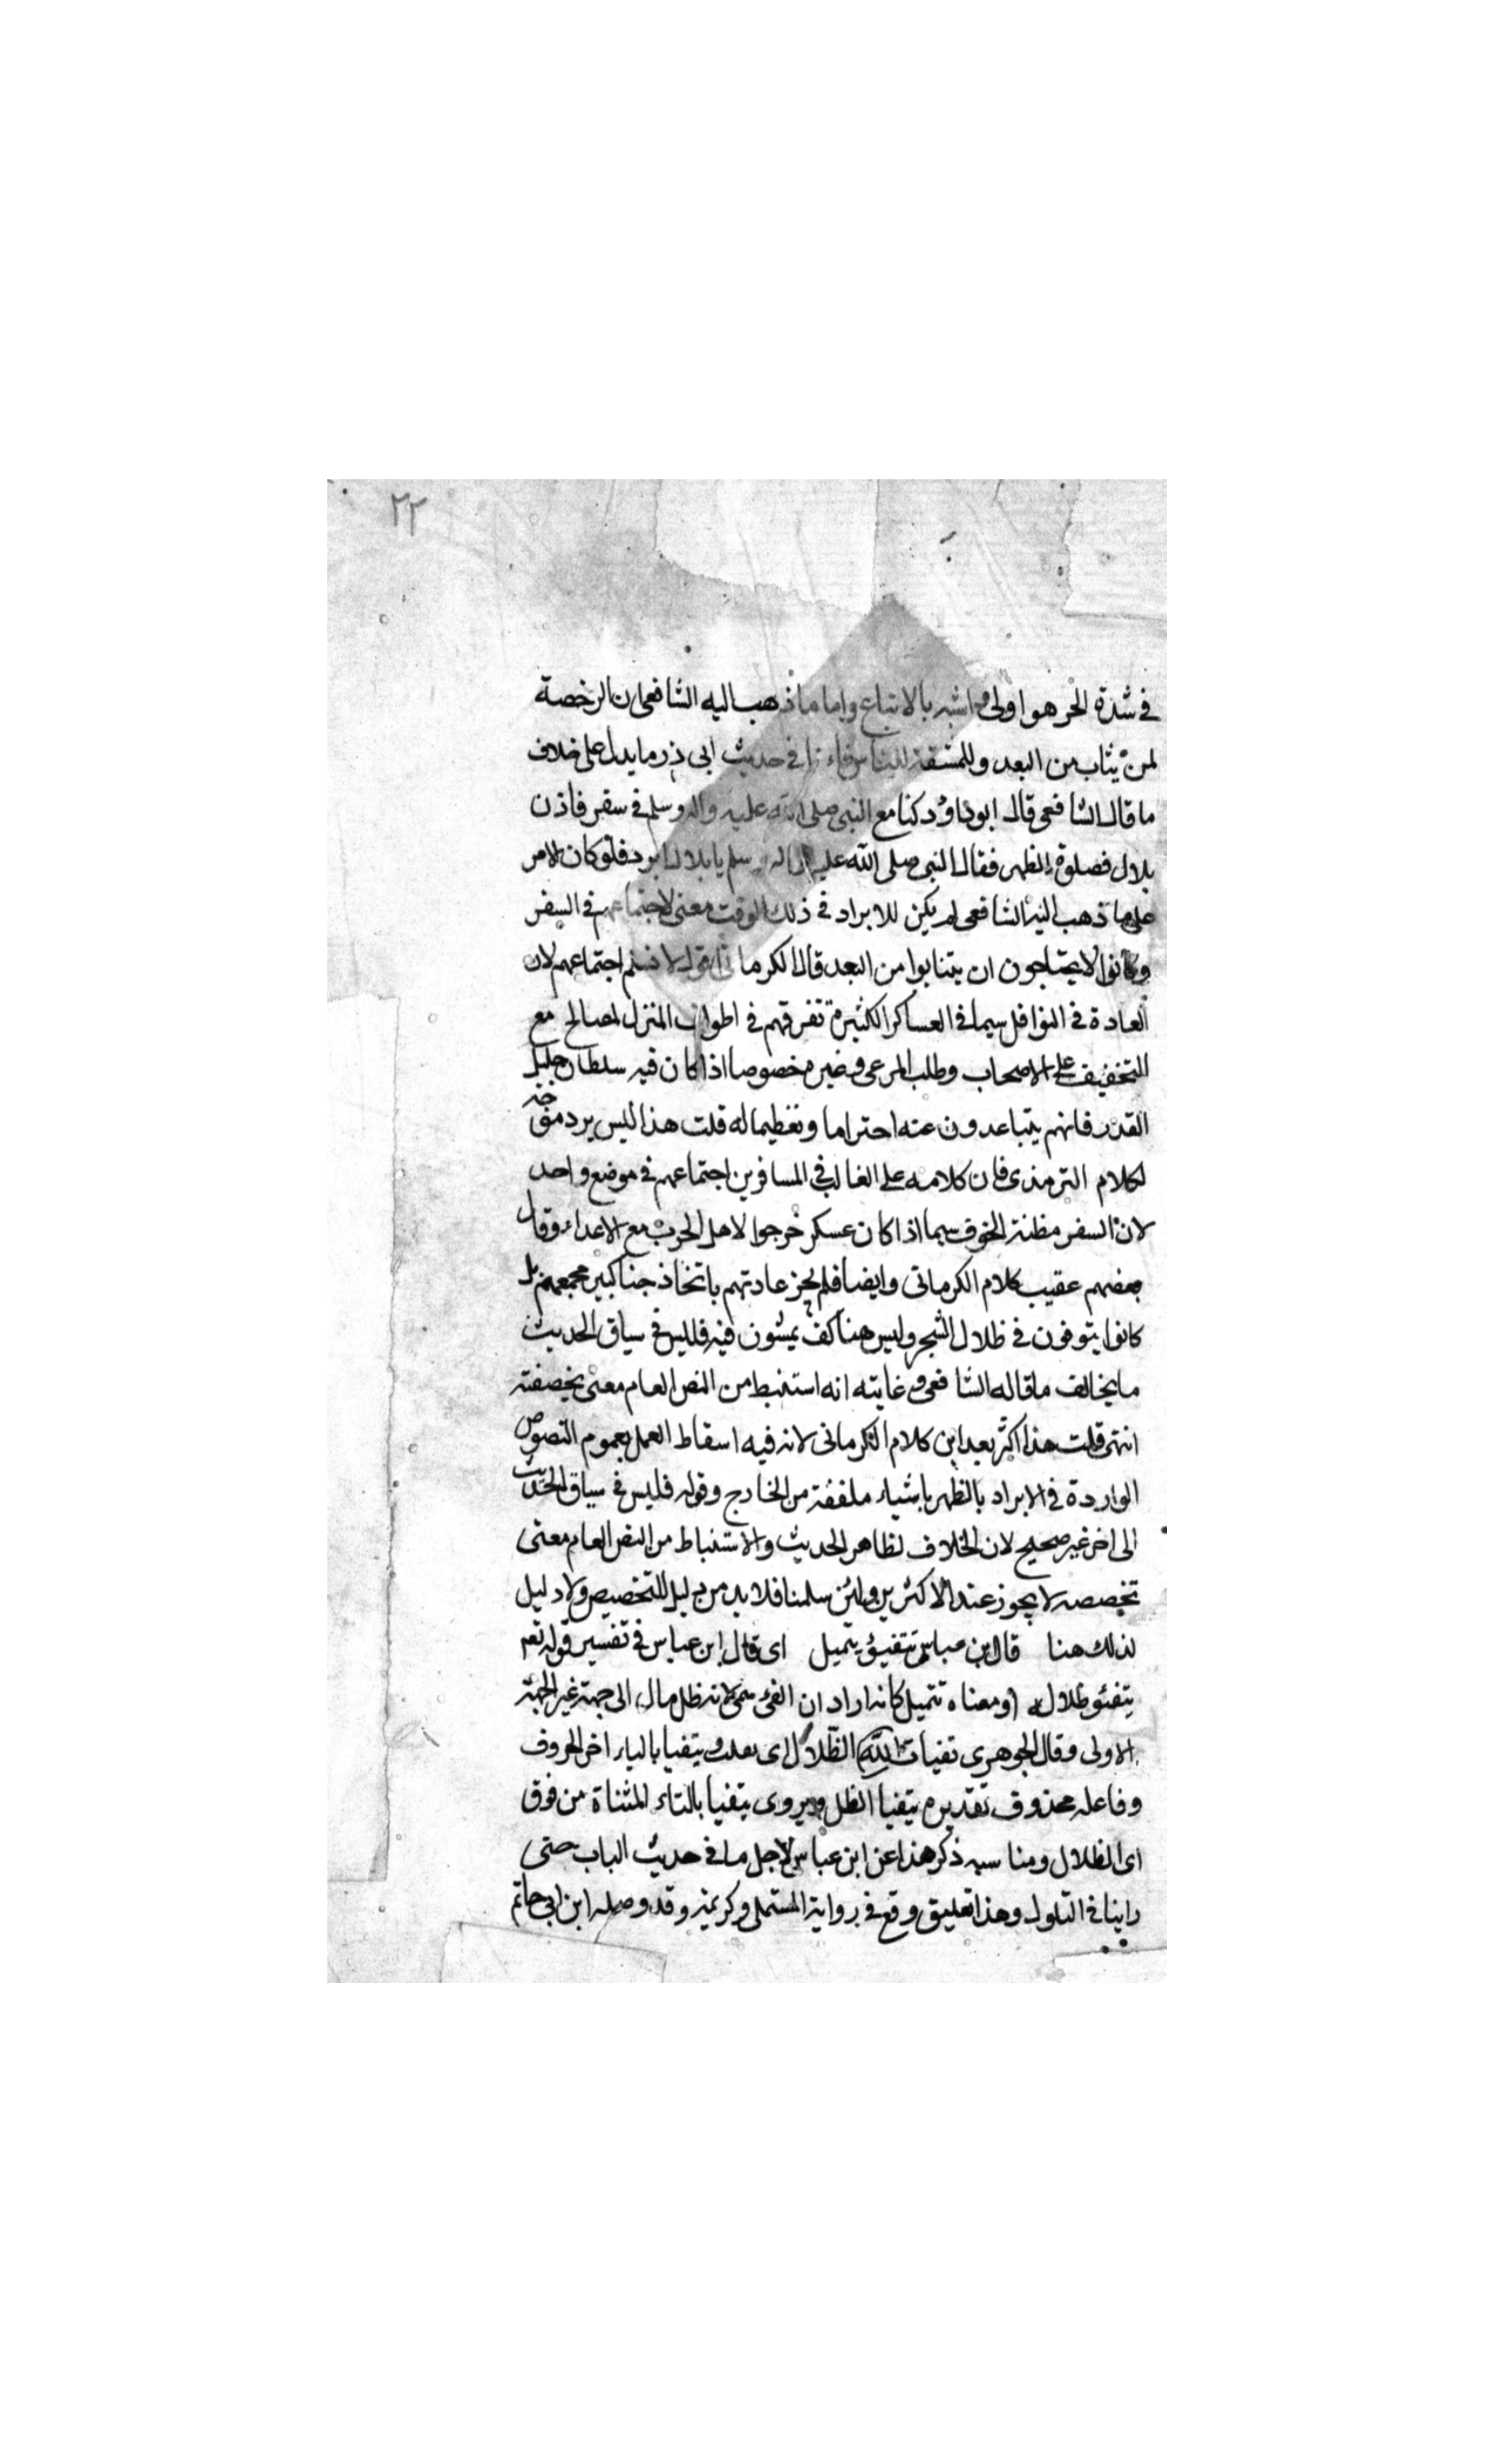 ٢٢
في شدة الحر هو اولى واشبه بالاتباع واما ما ذهب اليه الشافعي ان الرخصة
لمن ينتاب من البعد وللمشقة للناس فان في حديث ابي ذر ما يدل على خلاف
ما قال الشافعي قال ابو داود كنا مع النبي صلى الله عليه واله وسلم في سفر فاذن
بلال فصلوة الظهر فقال النبي صلى الله عليه واله وسلم يا بلال ابرد فلو كان الامر
على ما ذهب اليه الشافعي لم يكن للابراد في ذلك الوقت معنى لاجتماعهم في السفر
وكانوا لا يحتاجون ان يتنابوا من البعد قال الكرماني اقول لا نسلم اجتماعهم لان
العادة في النوافل سيما في العساكر الكثيرة تفرقهم في اطراف المنزل لمصالح مع
التخفيف على الاصحاب وطلب المرعى وغيره خصوصا اذا كان فيه سلطان جليل
القدر فانهم يتباعدون عنه احتراما وتعظيما له قلت هذا ليس برد
لكلام الترمذي فان كلامه على الغالب في المسافرين اجتماعهم في موضع واحد
لان السفر مظنة الخوف سيما اذا كان عسكر خرجوا لاهل الحرب مع الاعداء وقال
بعضهم عقيب كلام الكرماني وايضا فلم يجز عادتهم باتخاذ جنا كبير يجمعهم بل
كانوا يتوفون في ظلال الشجر وليس هناك يمشون فيه فليس في سياق الحديث
ما يخالف ما قاله الشافعي وغايته انه استنبط من النص العام معنى يخصصه
انتهى قلت هذا اكثر بعدا من كلام الكرماني لانه فيه اسقاط العمل بعموم النصوص
الواردة في الابراد بالظهر باشياء ملفقة من الخارج وقوله فليس في سياق الحديث
الى اخر غير صحيح لان الخلاف لظاهر الحديث والاستنباط من النص العام معنى
تخصصه لا يجوز عند الاكثرين ولئن سلمنا فلا بد من دليل للتخصيص ولا دليل
لذلك هنا قال ابن عباس يتفيؤ يتميل اي قال ابن عباس في تفسير قوله تعم
يتفئو ظلاله ومعناه تتميل كانه اراد ان الفيء سمي لانه ظل مال الى جهة غير الجهة
الاولى وقال الجوهري تفيات الظلال اي تقلبت ويتفيا بالياء اخر الحروف
وفاعله محذوف تقديره يتفيا الظل ويروى يتفيا بالتاء المثناة من فوق
اي الظلال ومناسبه ذكر هذا عن ابن عباس لاجل ما في حديث الباب حتى
راينا في التلول وهذا تعليق وقع في رواية المستملي وكريمة وقد وصله ابن ابي حاتم